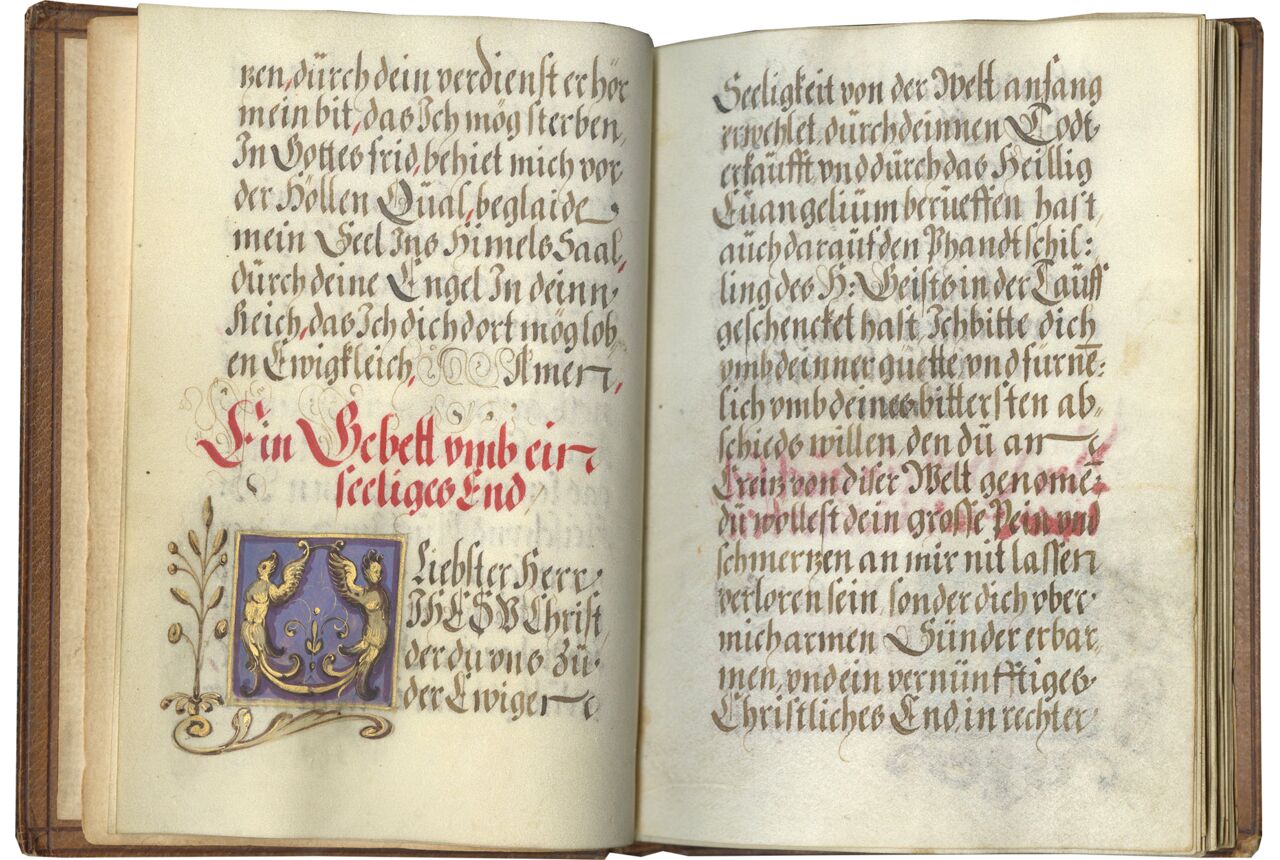 tzen, dürch dein verdienst erhör
mein bit, das Ich mög sterben,
In Gottes frid, behiet mich vor
der Höllen Qüal, beglaide
mein Seel Ins Himels Saal,
dürch deine Engel In deinn
Reich, das Ich dich dort mög lob
en Ewigkleich, Amen,
Ein Gebett vmb ein
seeliges End,
Liebster Herr
IHESV Christ
der du vns Zü
der Ewigen
Seeligkeit von der Welt anfang
erwehlet, dürch deinnen Todt
erkaüfft, vnd dürch das Heillig
Eüangeliüm berüeffen hast,
auch daraüf den Phandtschil:
ling des H: Geists in der Taüff
geschencket hast, Ich bitte dich
vmb deinner güette, vnd fürnē:
lich vmb deines bittersten ab,
schieds willen, den dü an
Creütz von diser Welt genomē:
dü wollest dein grosse Pein vnd
schmertzen an mir nit lassen
verloren sein, sonder dich vber
mich armen Sünder erbar,
men, vnd ein vernünfftiges
Christliches End, in rechter